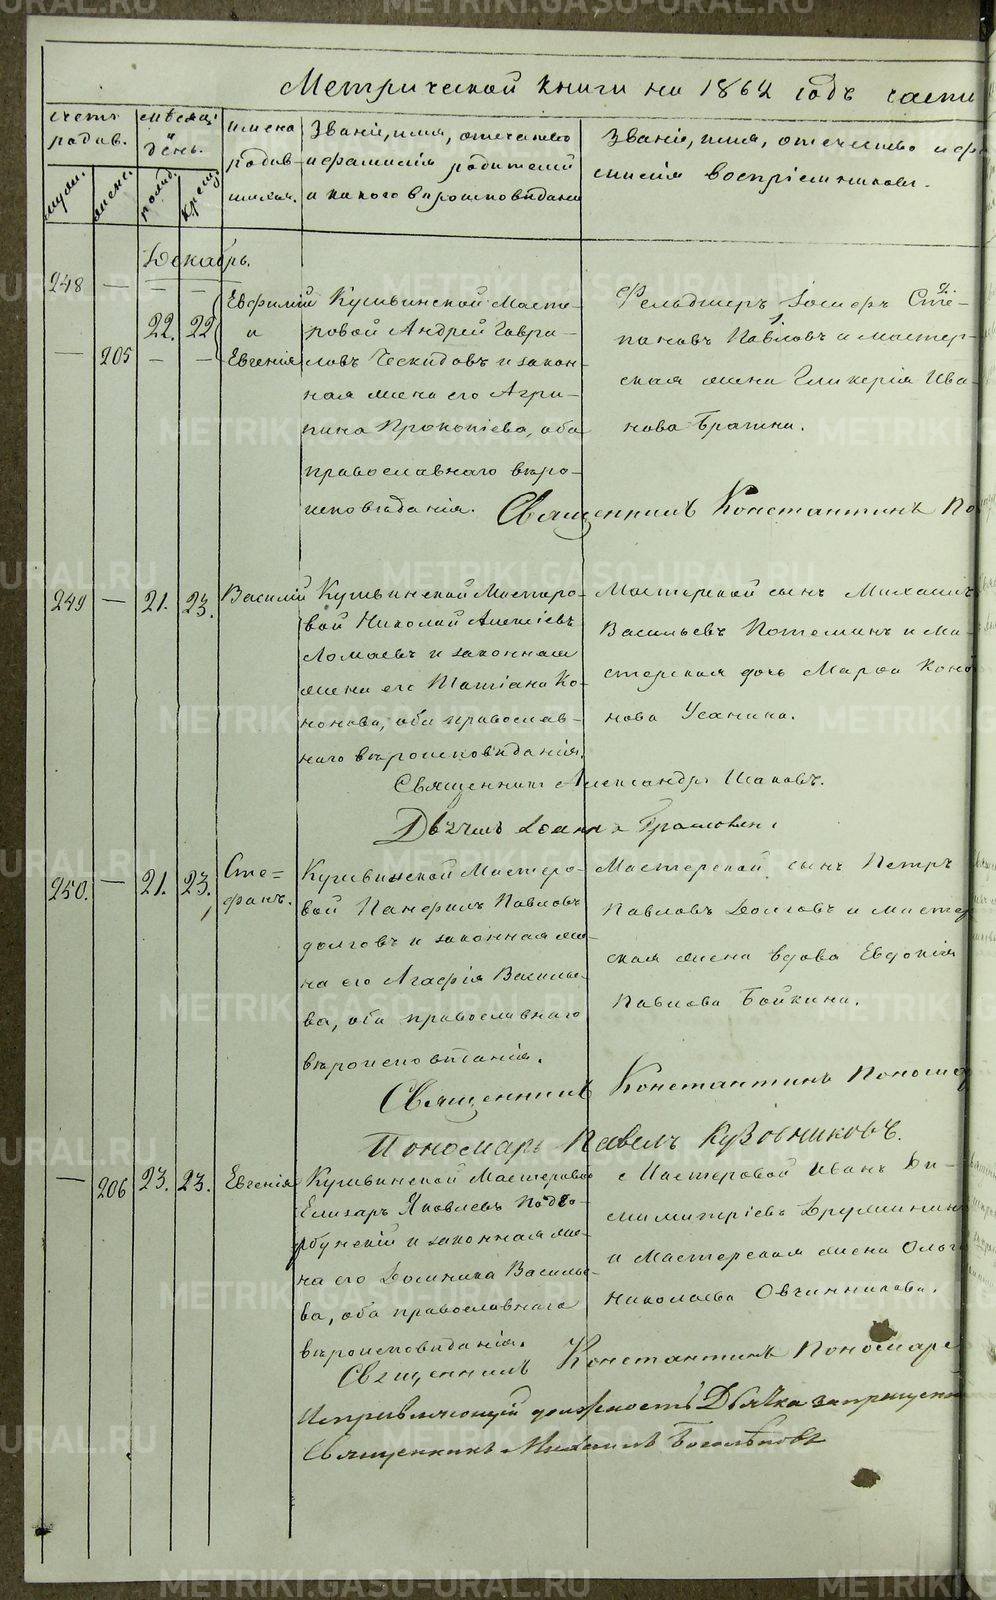 Метрической книги на 1862 годъ части
счетъ родив.
мѣсяцъ и день.
имена родив-
шихся.
Званіе, имя, отчество
и фамилія родителей
и какого вѣроисповѣданія
Званіе, имя, отчество и фа-
милія воспріемниковъ.
муж.
женс.
рожд.
крещ.
Декабрь.
248 — — —
22. 22
— 205 — —
Евфимій
и
Евгенія
Кушвинской Масте-
ровой Андрей Гаври-
ловъ Ческидовъ и закон-
ная жена его Агри-
пина Прокопіева, оба
православнаго вѣро-
исповѣданія.
Фельдшеръ Іосифъ Сте-
пановъ Павловъ и мастер-
ская жена Гликерія Ива-
нова Брагина.
Священникъ Константинъ По
249 — 21. 23.
Василій
Кушвинской Мастеро-
вой Николай Алексіевъ
Ломаевъ и законная
жена его Татіана Ко-
нонова, оба православ-
наго вѣроисповѣданія.
Мастерской сынъ Михаилъ
Васильевъ Потемин и Ма-
стерская дочь Марфа Коно
нова Усанина.
Священникъ Александръ Ишаковъ.
Дьячекъ Іоаннъ
250. — 21. 23.
Сте=
фанъ.
Кушвинской Мастеро-
вой Панфилъ Павловъ
Долговъ и законная же-
на его Агафія Василье-
ва, оба православнаго
вѣроисповѣданія.
Мастерской сынъ Петръ
Павловъ Долговъ и мастер
ская жена вдова Евдокія
Павлова Бойкина.
Священникъ Константинъ Пономар
Пономарь Павелъ Кузовниковъ.
— 206 23. 23.
Евгенія
Кушвинской Мастеровой
Елизаръ Яковлевъ Подго-
рбунскій и законная же-
на его Домника Василье-
ва, оба православнаго
вѣроисповѣданія.
Мастеровой Иванъ Ди-
митріевъ Дружинин
и Мастерская жена Ольга
Николаева Овчинникова.
Священникъ Константинъ Пономаре
Исправляющій должность Дьячка запрещеной
Священникъ Михаилъ Боголѣповъ
METRIKI.GASO-URAL.RU